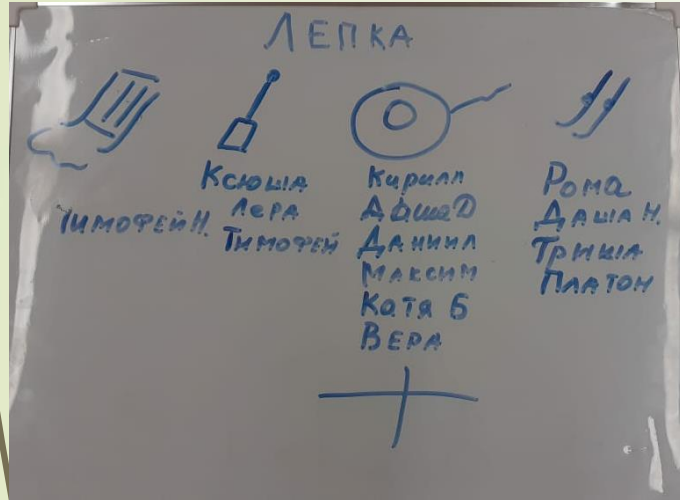 ЛЕПКА
ТИМОФЕЙ Н.
Ксюша
Лера
Тимофей
Кирилл
Даша Д
Даниил
Максим
Катя Б
Вера
Рома
Даша Н.
Триша
Платон